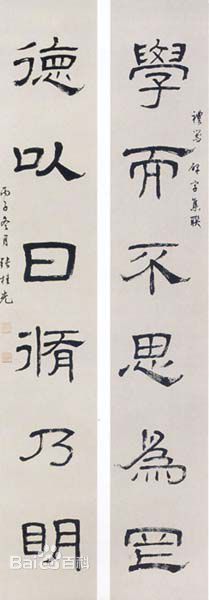 禮器碑字集聯
學而不思為罔
德以日脩乃眀
丙子冬月張桂光
Baidu百科